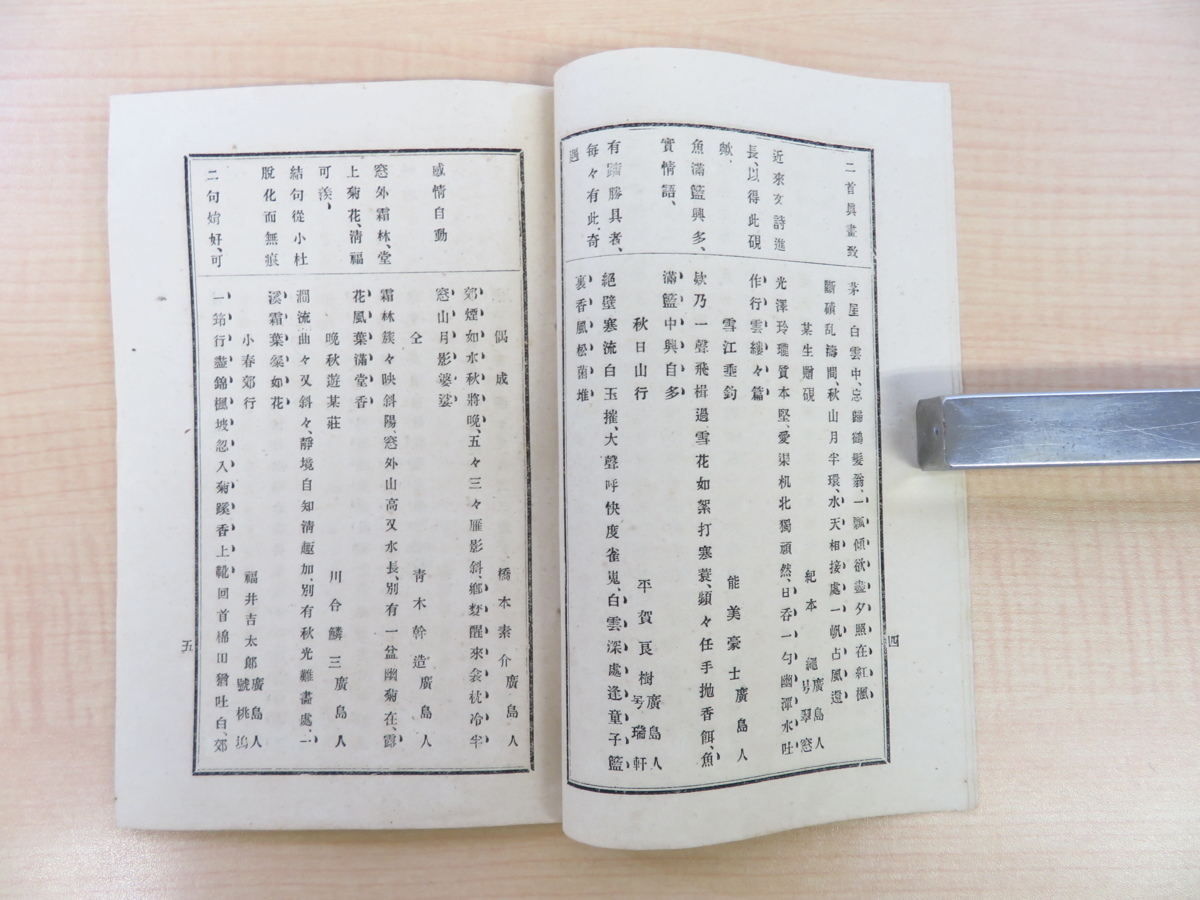 二首眞畫致
近來文詩進
長、以得此硯
歟、
魚滿籃興多、
實情語、
有躋勝具者、
每々有此奇
遇
茅屋白雲中、忘歸鶴髮翁、一瓢傾欲盡、夕照在紅楓
斷磧乱濤間、秋山月半環、水天相接處、一帆占風還
某生贈硯
紀本 繩 廣島人 号翠窓
光澤玲瓏質本堅、愛渠机北獨頑然、日呑一勺幽潭水、吐
作行雲縷々篇
雪江垂釣
能美豪士 廣島人
欸乃一聲飛楫過、雪花如絮打寒蓑、頻々任手抛香餌、魚
滿籃中興自多
秋日山行
平賀良樹 廣島人 号瑞軒
絕壁寒流白玉摧、大聲呼快度崔嵬、白雲深處逢童子、籃
裏香風松菌堆
四
感情自動
窓外霜林、堂
上菊花、淸福
可羨、
結句從小杜
脫化而無痕
二句始好、可
偶成
橋本素介 廣島人
郊煙如水秋將晚、五々三々雁影斜、鄕夢醒來衾枕冷、半
窓山月影婆娑
仝
靑木幹造 廣島人
霜林簇々映斜陽、窓外山高又水長、別有一盆幽菊在、露
花風葉滿堂香
晚秋遊某莊
川合鱗三 廣島人
澗流曲々又斜々、靜境自知淸趣加、別有秋光難畫處、一
溪霜葉粲如花
小春郊行
福井吉太郞 廣島人 號桃塢
一筇行盡錦楓坡、忽入菊蹊香上靴、回首棉田猶吐白、郊
五